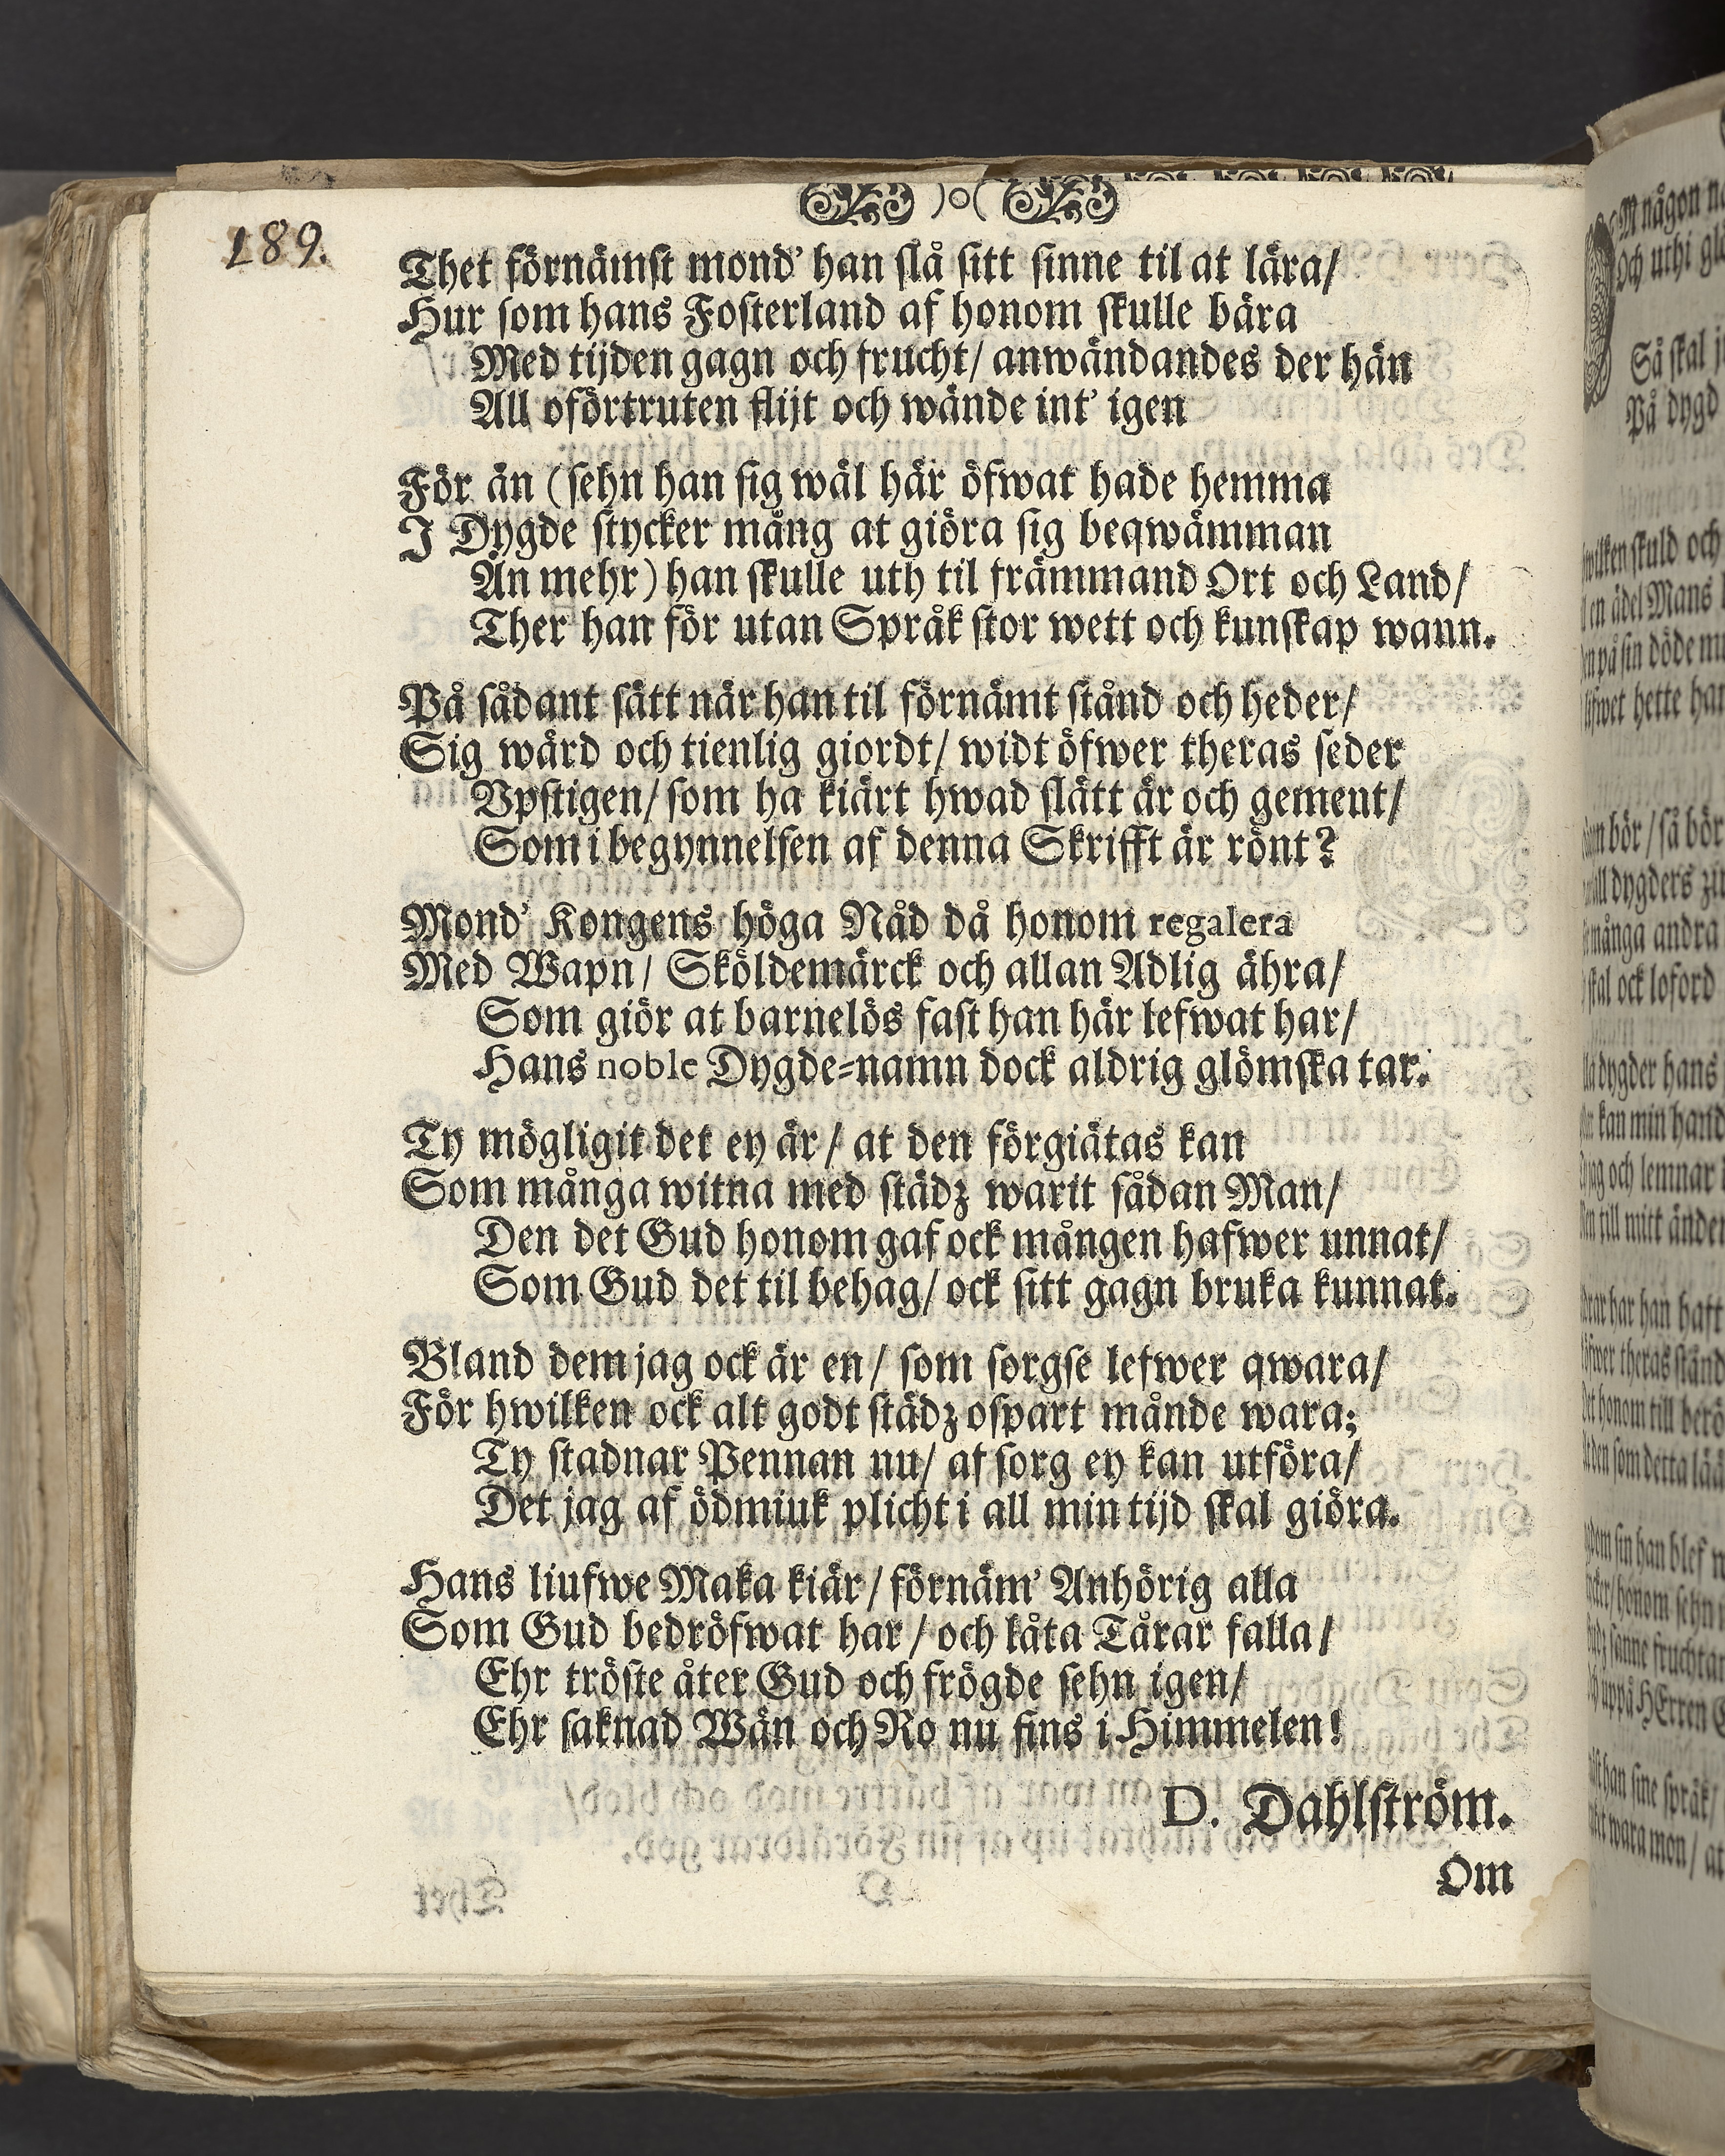 189.
)o(
Thet förnämst mond' han slå sitt sinne til at lära/
Hur som hans Fosterland af honom skulle bära
Med tijden gagn och frucht/ anwändandes der hän
All oförtruten flijt och wände int' igen
För än (sehn han sig wäl här öfwat hade hemma
I Dygde stycker mång at giöra sig beqwämman
Än mehr) han skulle uth til främmand Ort och Land/
Ther han för utan Språk stor wett och kunskap wann.
På sådant sätt när han til förnämt stånd och heder/
Sig wärd och tienlig giordt/ widt öfwer theras seder
Vpstigen/ som ha kiärt hwad slätt är och gement/
Som i begynnelsen af denna Skrifft är rönt?
Mond' Kongens höga Nåd då honom regalera
Med Wapn/ Sköldemärck och allan Adlig ähra/
Som giör at barnelös fast han här lefwat har/
Hans noble Dygde-namn dock aldrig glömska tar.
Ty mögligit det ey är/ at den förgiätas kan
Som många witna med städz warit sådan Man/
Den det Gud honom gaf ock mången hafwer unnat/
Som Gud det til behag/ ock sitt gagn bruka kunnat.
Bland dem jag ock är en/ som sorgse lefwer qwara/
För hwilken ock alt godt städz ospart månde wara;
Ty stadnar Pennan nu/ af sorg ey kan utföra/
Det jag af ödmiuk plicht i all min tijd skal giöra.
Hans liufwe Maka kiär/ förnäm' Anhörig alla
Som Gud bedröfwat har/ och låta Tårar falla/
Ehr tröste åter Gud och frögde sehn igen/
Ehr saknad Wän och Ro nu fins i Himmelen!
D. Dahlström.
Om